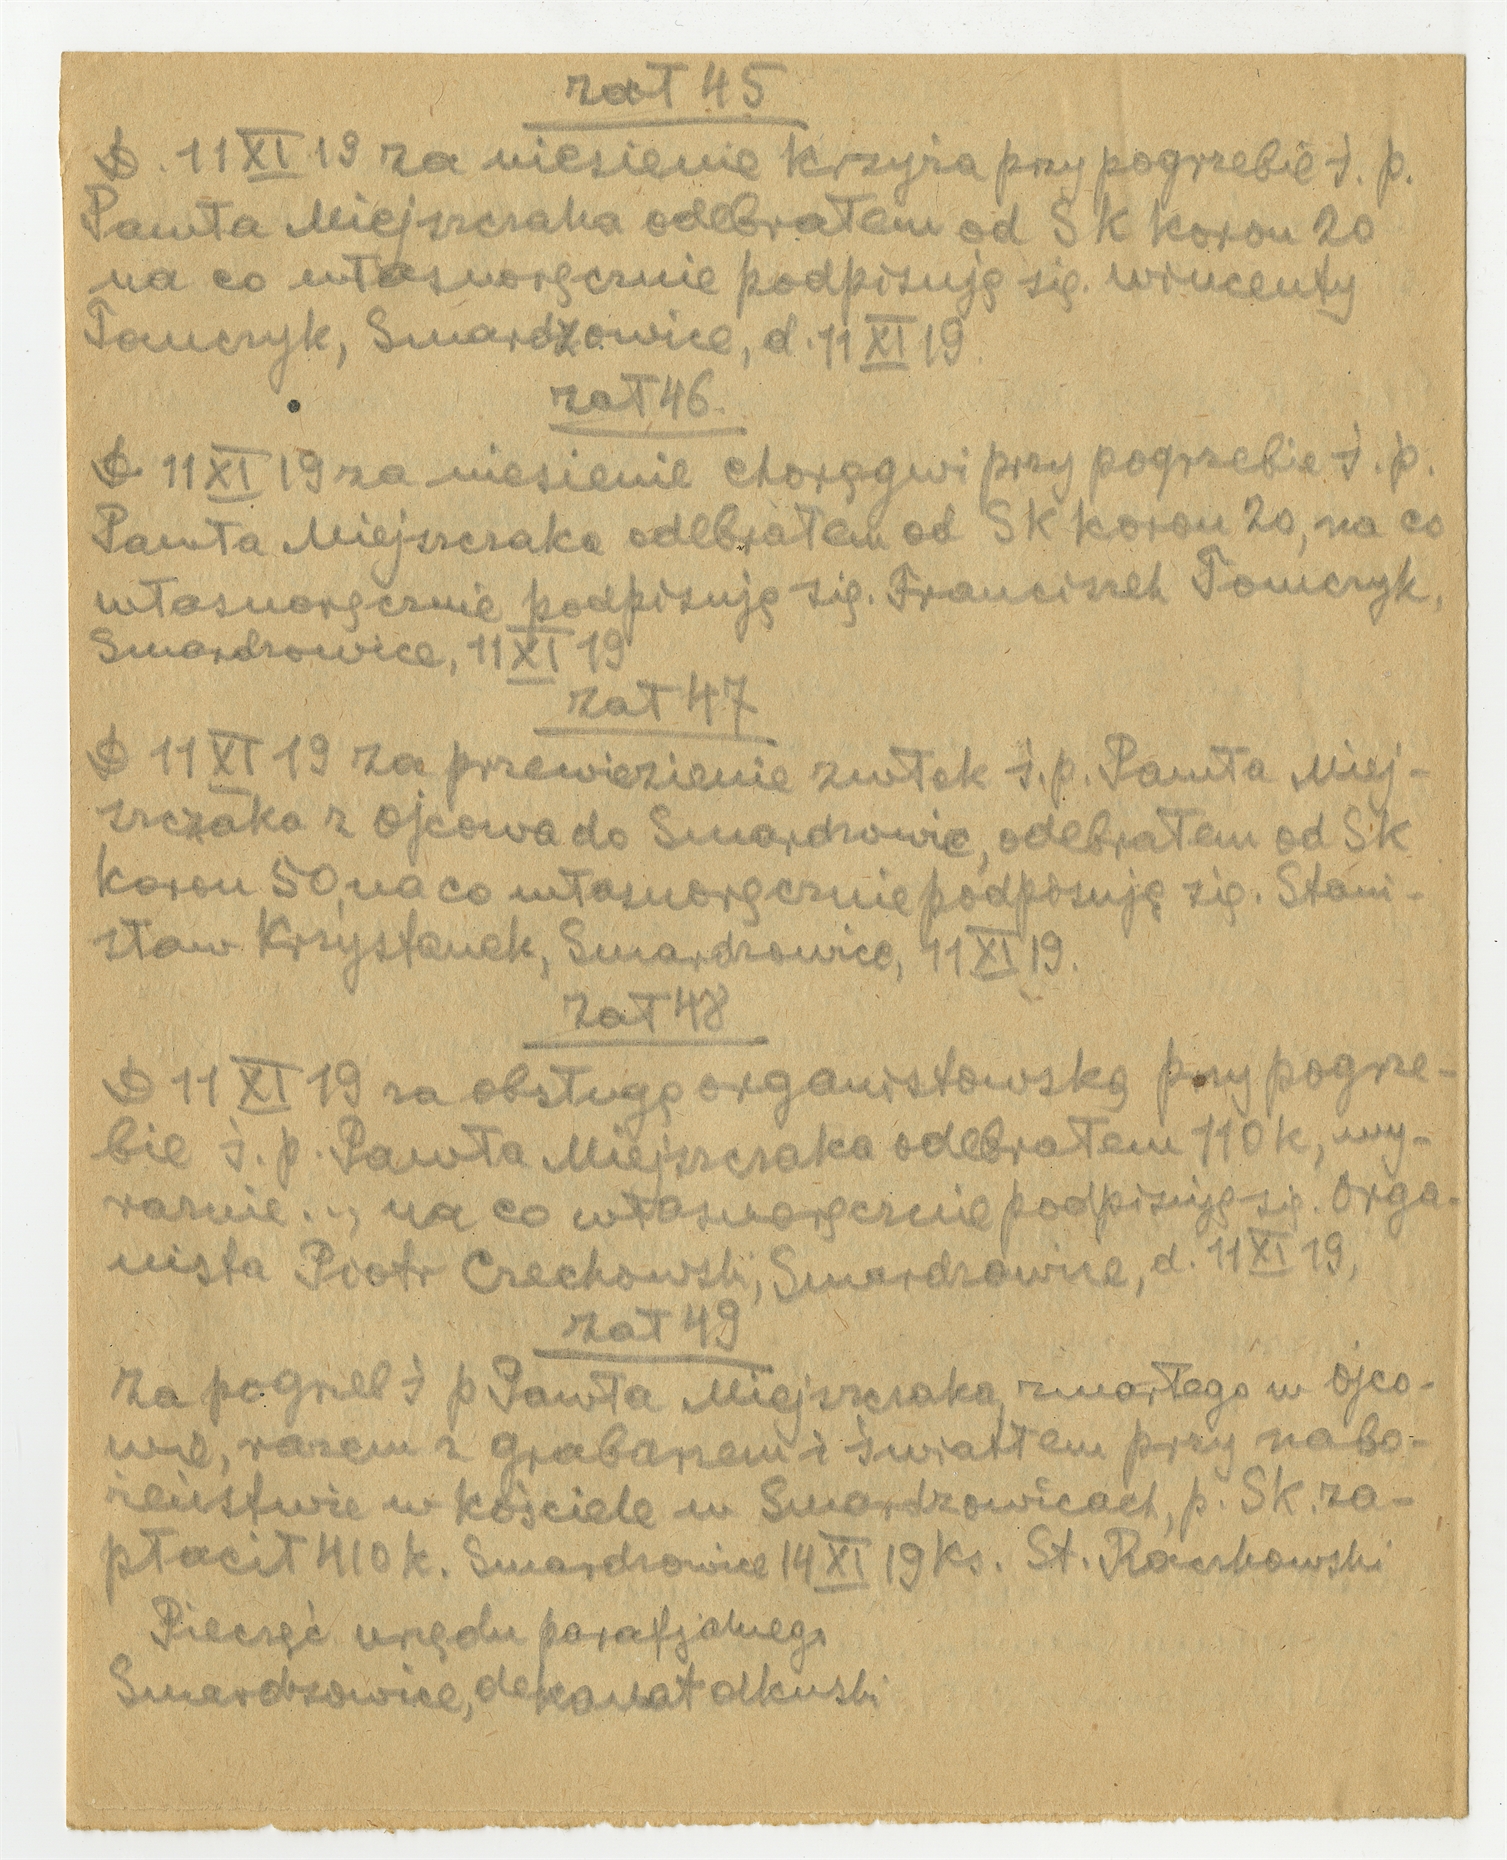 zał 45
D. 11 XI 19 za niesienie krzyża przy pogrzebie ś. p.
Pawła Miejszczaka odebrałem od SK koron 20
na co własnoręcznie podpisuję się. Wincenty
Tomczyk, Smardzowice, d. 11 XI 19
zał 46.
D 11 XI 19 za niesienie chorągwi przy pogrzebie ś. p.
Pawła Miejszczaka odebrałem od SK koron 20, na co
własnoręcznie podpisuję się. Franciszek Tomczyk,
Smardzowice, 11 XI 19
zał 47
D 11 XI 19 za przewiezienie zwłok ś. p. Pawła Miej-
szczaka z Ojcowa do Smardzowic, odebrałem od SK
koron 50, na co własnoręcznie podpisuję się. Stani-
sław Krzystanek, Smardzowice, 11 XI 19.
zał 48
D 11 XI 19 za obsługę organistowską przy pogrze-
bie ś. p. Pawła Miejszczaka odebrałem 110 k, wy-
raźnie..., na co własnoręcznie podpisuję się. Orga-
nista Piotr Czechowski, Smardzowice, d. 11 XI 19,
zał 49
Za pogrzeb ś p Pawła Miejszczaka, zmarłego w Ojco-
wie, razem z grabarzem i światłem przy nabo-
żeństwie w kościele w Smardzowicach, p. SK. za-
płacił 410 k. Smardzowice 14 XI 19 Ks. St. Raczkowski
Pieczęć urzędu parafjalnego
Smardzowice, dekanat olkuski